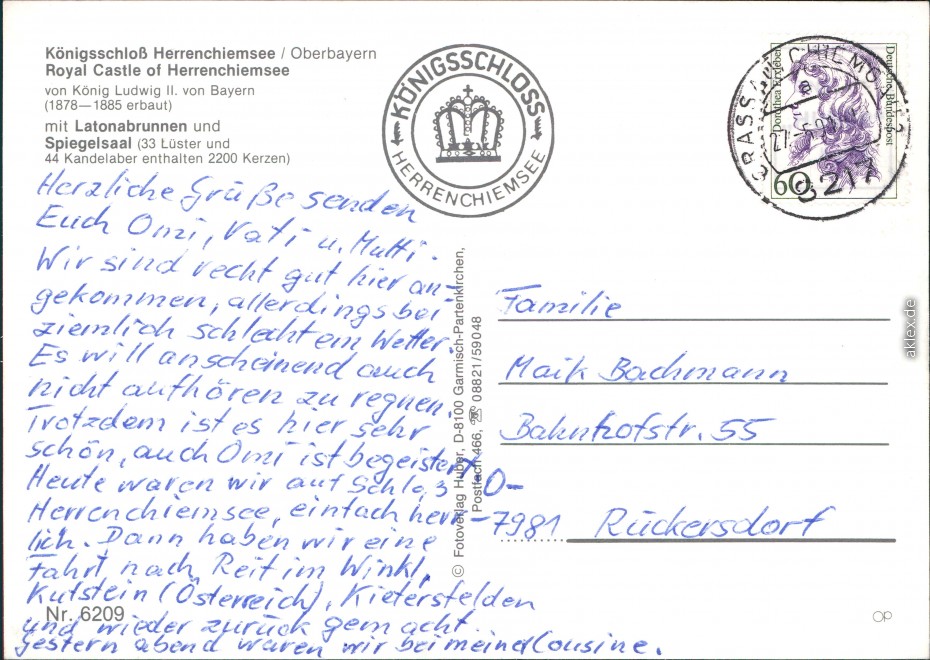 Königsschloß Herrenchiemsee / Oberbayern
Royal Castle of Herrenchiemsee
von König Ludwig II. von Bayern
(1878—1885 erbaut)
mit Latonabrunnen und
Spiegelsaal (33 Lüster und
44 Kandelaber enthalten 2200 Kerzen)
KÖNIGSSCHLOSS
HERRENCHIEMSEE
Deutsche Bundespost
Dorothea Erxleben
60
8217
Herzliche Grüße senden
Euch Omi, Vati u. Mutti.
Wir sind recht gut hier an-
gekommen, allerdings bei
ziemlich schlechtem Wetter.
Es will anscheinend auch
nicht aufhören zu regnen.
Trotzdem ist es hier sehr
schön, auch Omi ist begeistert.
Heute waren wir auf Schloß
Herrenchiemsee, einfach herr-
lich. Dann haben wir eine
Fahrt nach Reit im Winkl,
Kufstein (Österreich), Kiefersfelden
und wieder zurück gemacht.
Gestern abend waren wir bei meiner Cousine.
Nr. 6209
© Fotoverlag Huber, D-8100 Garmisch-Partenkirchen,
Postfach 466, ☏ 08821/59048
Familie
Maik Bachmann
Bahnhofstr. 55
O-
7981 Rückersdorf
aklex.de